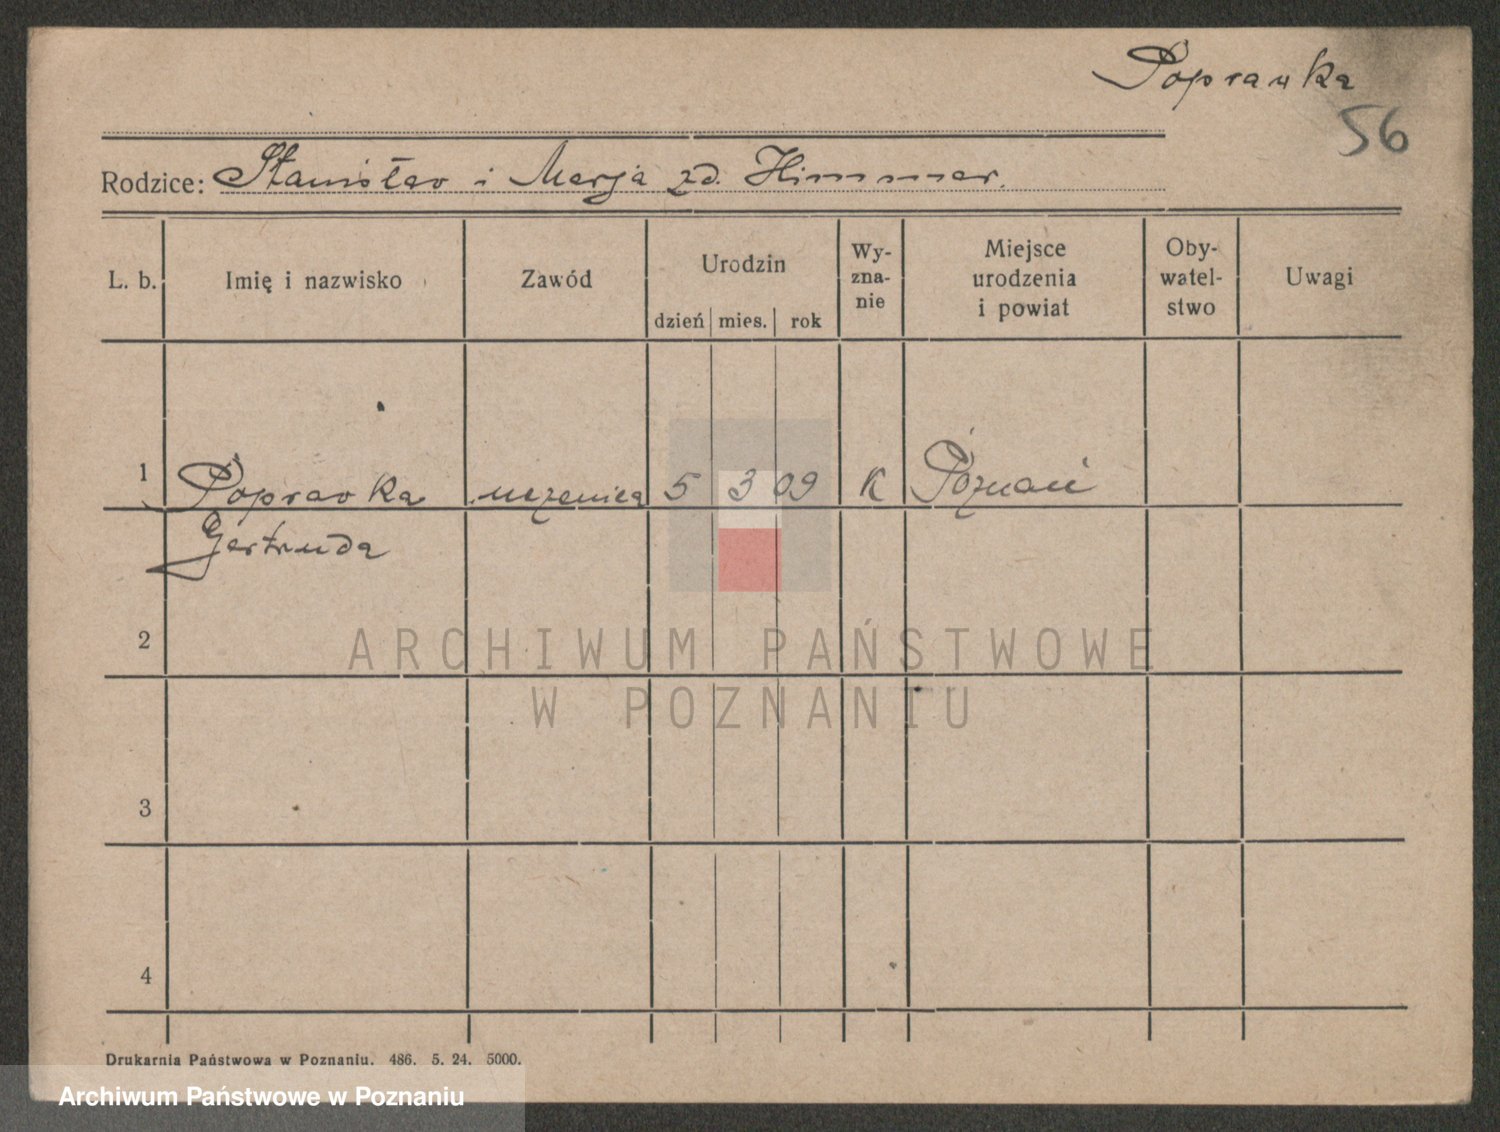 Poprawka
56
Rodzice: Stanisław i Marja zd. Himmer.
L. b. Imię i nazwisko Zawód Urodzin dzień mies. rok Wyznanie Miejsce urodzenia i powiat Obywatelstwo Uwagi
1 Poprawka uczenica 5 3 09 K Poznań
Gertruda
2
ARCHIWUM PAŃSTWOWE
W POZNANIU
3
4
Drukarnia Państwowa w Poznaniu. 486. 5. 24. 5000.
Archiwum Państwowe w Poznaniu